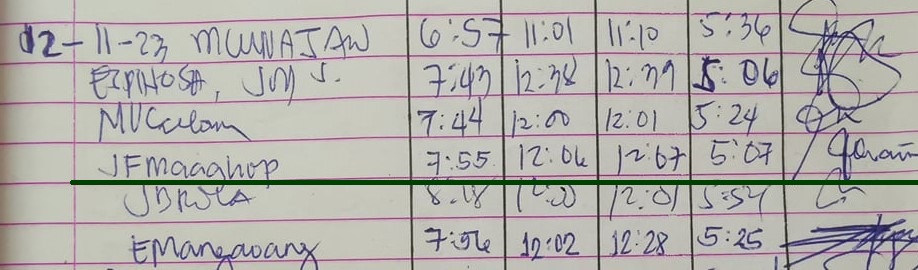 12-11-23 MCUNAJAN 6:57 11:01 11:10 5:36
ESPINOSA, JOY S. 7:43 12:38 12:39 5:06
MVCalam 7:44 12:00 12:01 5:24
JFMagahop 7:55 12:06 12:07 5:07
8:18 12:00 12:01 5:54
EMangaoang 7:56 12:02 12:28 5:25